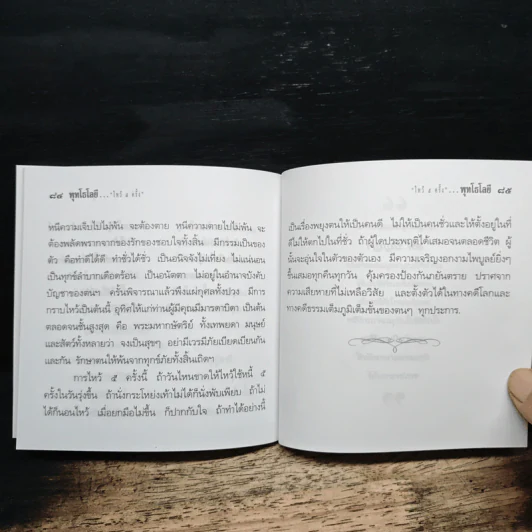 ๘๘ พุทโธโลยี..."ไหว้ ๕ ครั้ง"
หนีความเจ็บไปไม่พ้น จะต้องตาย หนีความตายไปไม่พ้น จะ
ต้องพลัดพรากจากของรักของชอบใจทั้งสิ้น มีกรรมเป็นของ
ตัว คือทำดีได้ดี ทำชั่วได้ชั่ว เป็นอนิจจังไม่เที่ยง ไม่แน่นอน
เป็นทุกข์ลำบากเดือดร้อน เป็นอนัตตา ไม่อยู่ในอำนาจบังคับ
บัญชาของตนฯ ครั้นพิจารณาแล้วพึงแผ่กุศลทั้งปวง มีการ
กราบไหว้เป็นต้นนี้ อุทิศให้แก่ท่านผู้มีคุณมีมารดาบิดา เป็นต้น
ตลอดจนชั้นสูงสุด คือ พระมหากษัตริย์ ทั้งเทพยดา มนุษย์
และสัตว์ทั้งหลายว่า จงเป็นสุขๆ อย่ามีเวรมีภัยเบียดเบียนกัน
และกัน รักษาตนให้พ้นจากทุกข์ภัยทั้งสิ้นเถิดฯ
การไหว้ ๕ ครั้งนี้ ถ้าวันไหนขาดให้ไหว้ใช้หนี้ ๕
ครั้งในวันรุ่งขึ้น ถ้านั่งกระโหย่งเท้าไม่ได้ก็นั่งพับเพียบ ถ้าไม่
ได้ก็นอนไหว้ เมื่อยกมือไม่ขึ้น ก็ปากกับใจ ถ้าทำได้อย่างนี้
"ไหว้ ๕ ครั้ง"...พุทโธโลยี ๘๙
เป็นเรื่องพยุงตนให้เป็นคนดี ไม่ให้เป็นคนชั่วและให้ตั้งอยู่ในที่
ดีไม่ให้ตกไปในที่ชั่ว ถ้าผู้ใดประพฤติได้เสมอจนตลอดชีวิต ผู้
นั้นจะอุ่นใจในตัวของตัวเอง มีความเจริญงอกงามไพบูลย์ยิ่งๆ
ขึ้นเสมอทุกคืนทุกวัน คุ้มครองป้องกันภยันตราย ปราศจาก
ความเสียหายที่ไม่เหลือวิสัย และตั้งตัวได้ในทางคดีโลกและ
ทางคดีธรรมเต็มภูมิเต็มชั้นของตนๆ ทุกประการ.